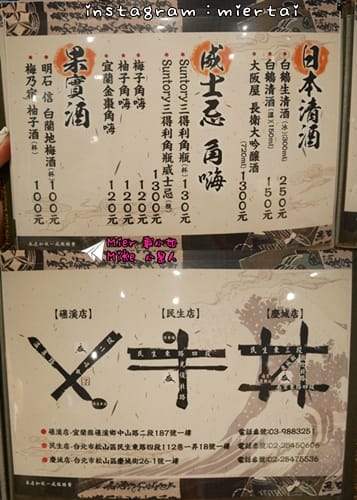 instagram：miertai
日本清酒
白鶴生清酒(冷)(300ml) 250元
白鶴清酒(溫)(150ml) 150元
大阪屋 長衛大吟釀酒(720ml) 1300元
威士忌 角嗨
Suntory三得利角瓶(杯) 130元
Suntory三得利角瓶威士忌(瓶) 1300元
梅子角嗨 120元
柚子角嗨 120元
宜蘭金棗角嗨 120元
果實酒
明石 信 白蘭地梅酒(杯) 100元
梅乃宿 柚子酒(杯) 100元
Mier
Mike
【礁溪店】
【民生店】
【慶城店】
中山路二段
民生東路四段
民生東路三段
礁溪店-宜蘭縣礁溪鄉中山路二段187號一樓 電話專號:03-9883251
民生店-台北市松山區民生東路四段112巷一弄18號一樓 電話專號:02-25450606
慶城店-台北市松山區慶城街26-1號一樓 電話專號:02-25475536